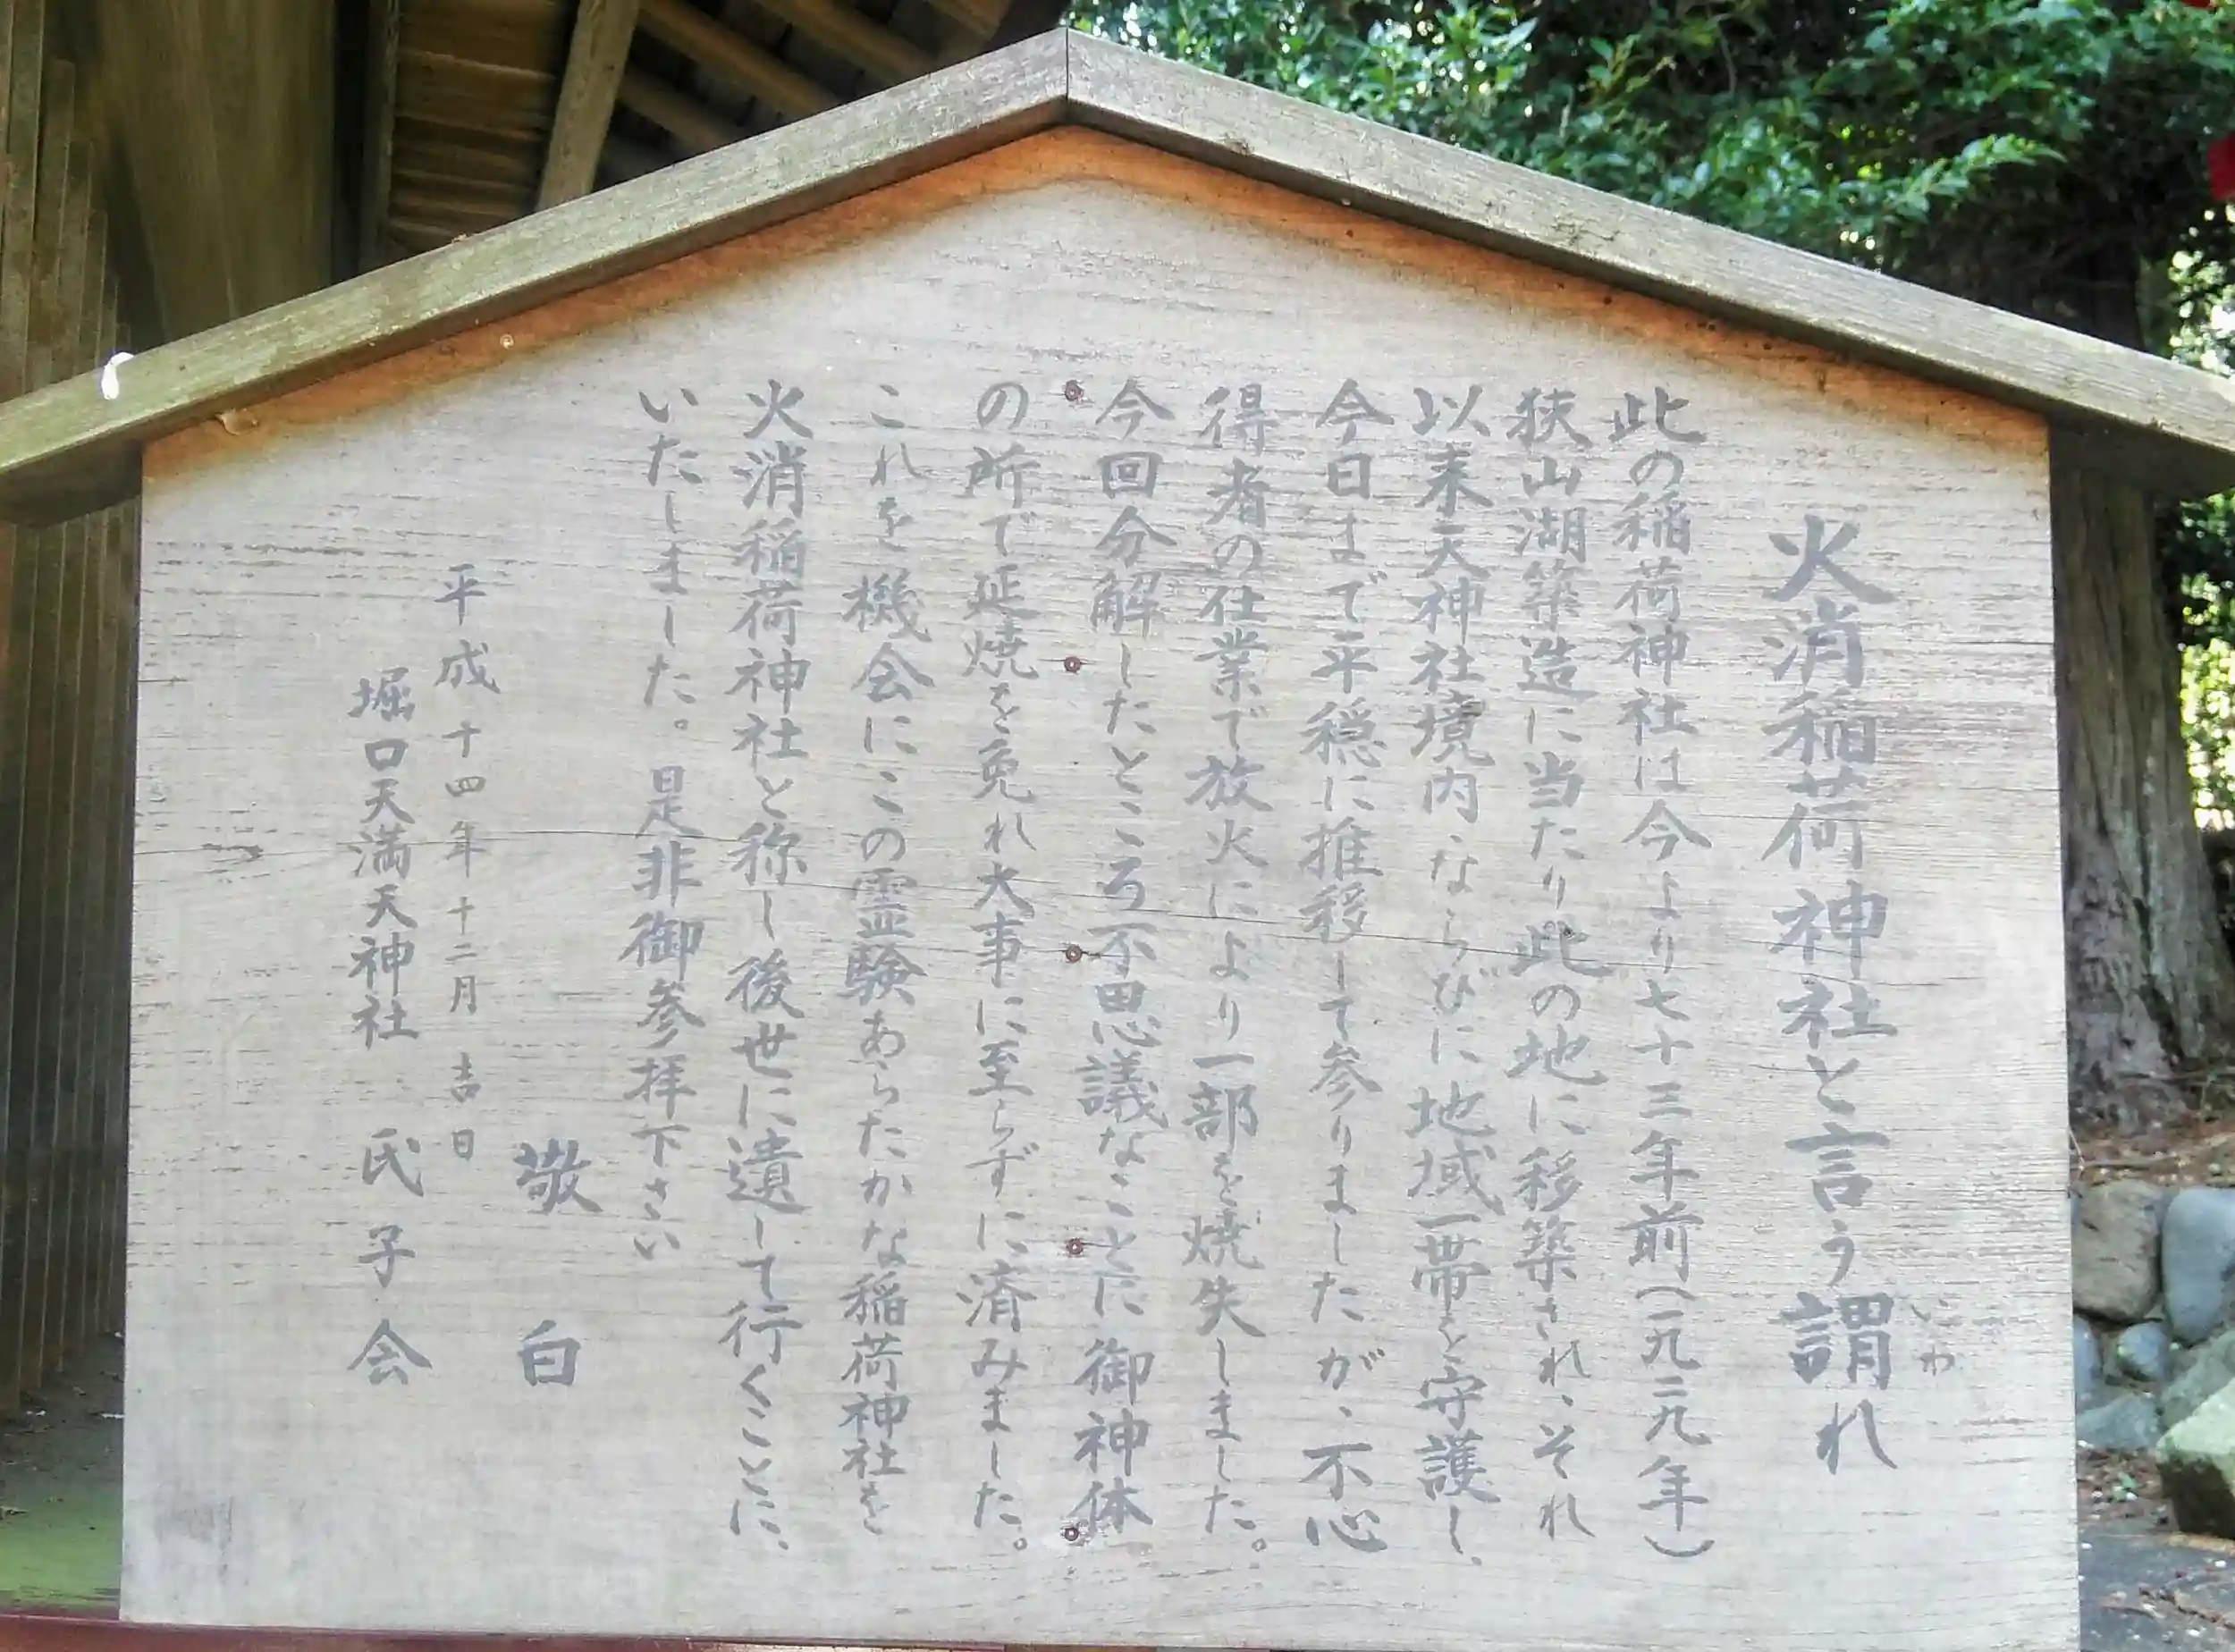 火消稲荷神社と言う謂れ
いわ
此の稲荷神社は今より七十三年前(一九二九年)
狭山湖築造に当たり此の地に移築され、それ
以来天神社境内ならびに地域一帯を守護し、
今日まで平穏に推移して参りましたが、不心
得者の仕業で放火により一部を焼失しました。
今回分解したところ不思議なことに御神体
の所で延焼を免れ大事に至らずに済みました。
これを機会にこの霊験あらたかな稲荷神社を
火消稲荷神社と称し後世に遺して行くことに、
いたしました。是非御参拝下さい
敬白
平成十四年十二月 吉日
堀口天満天神社 氏子会